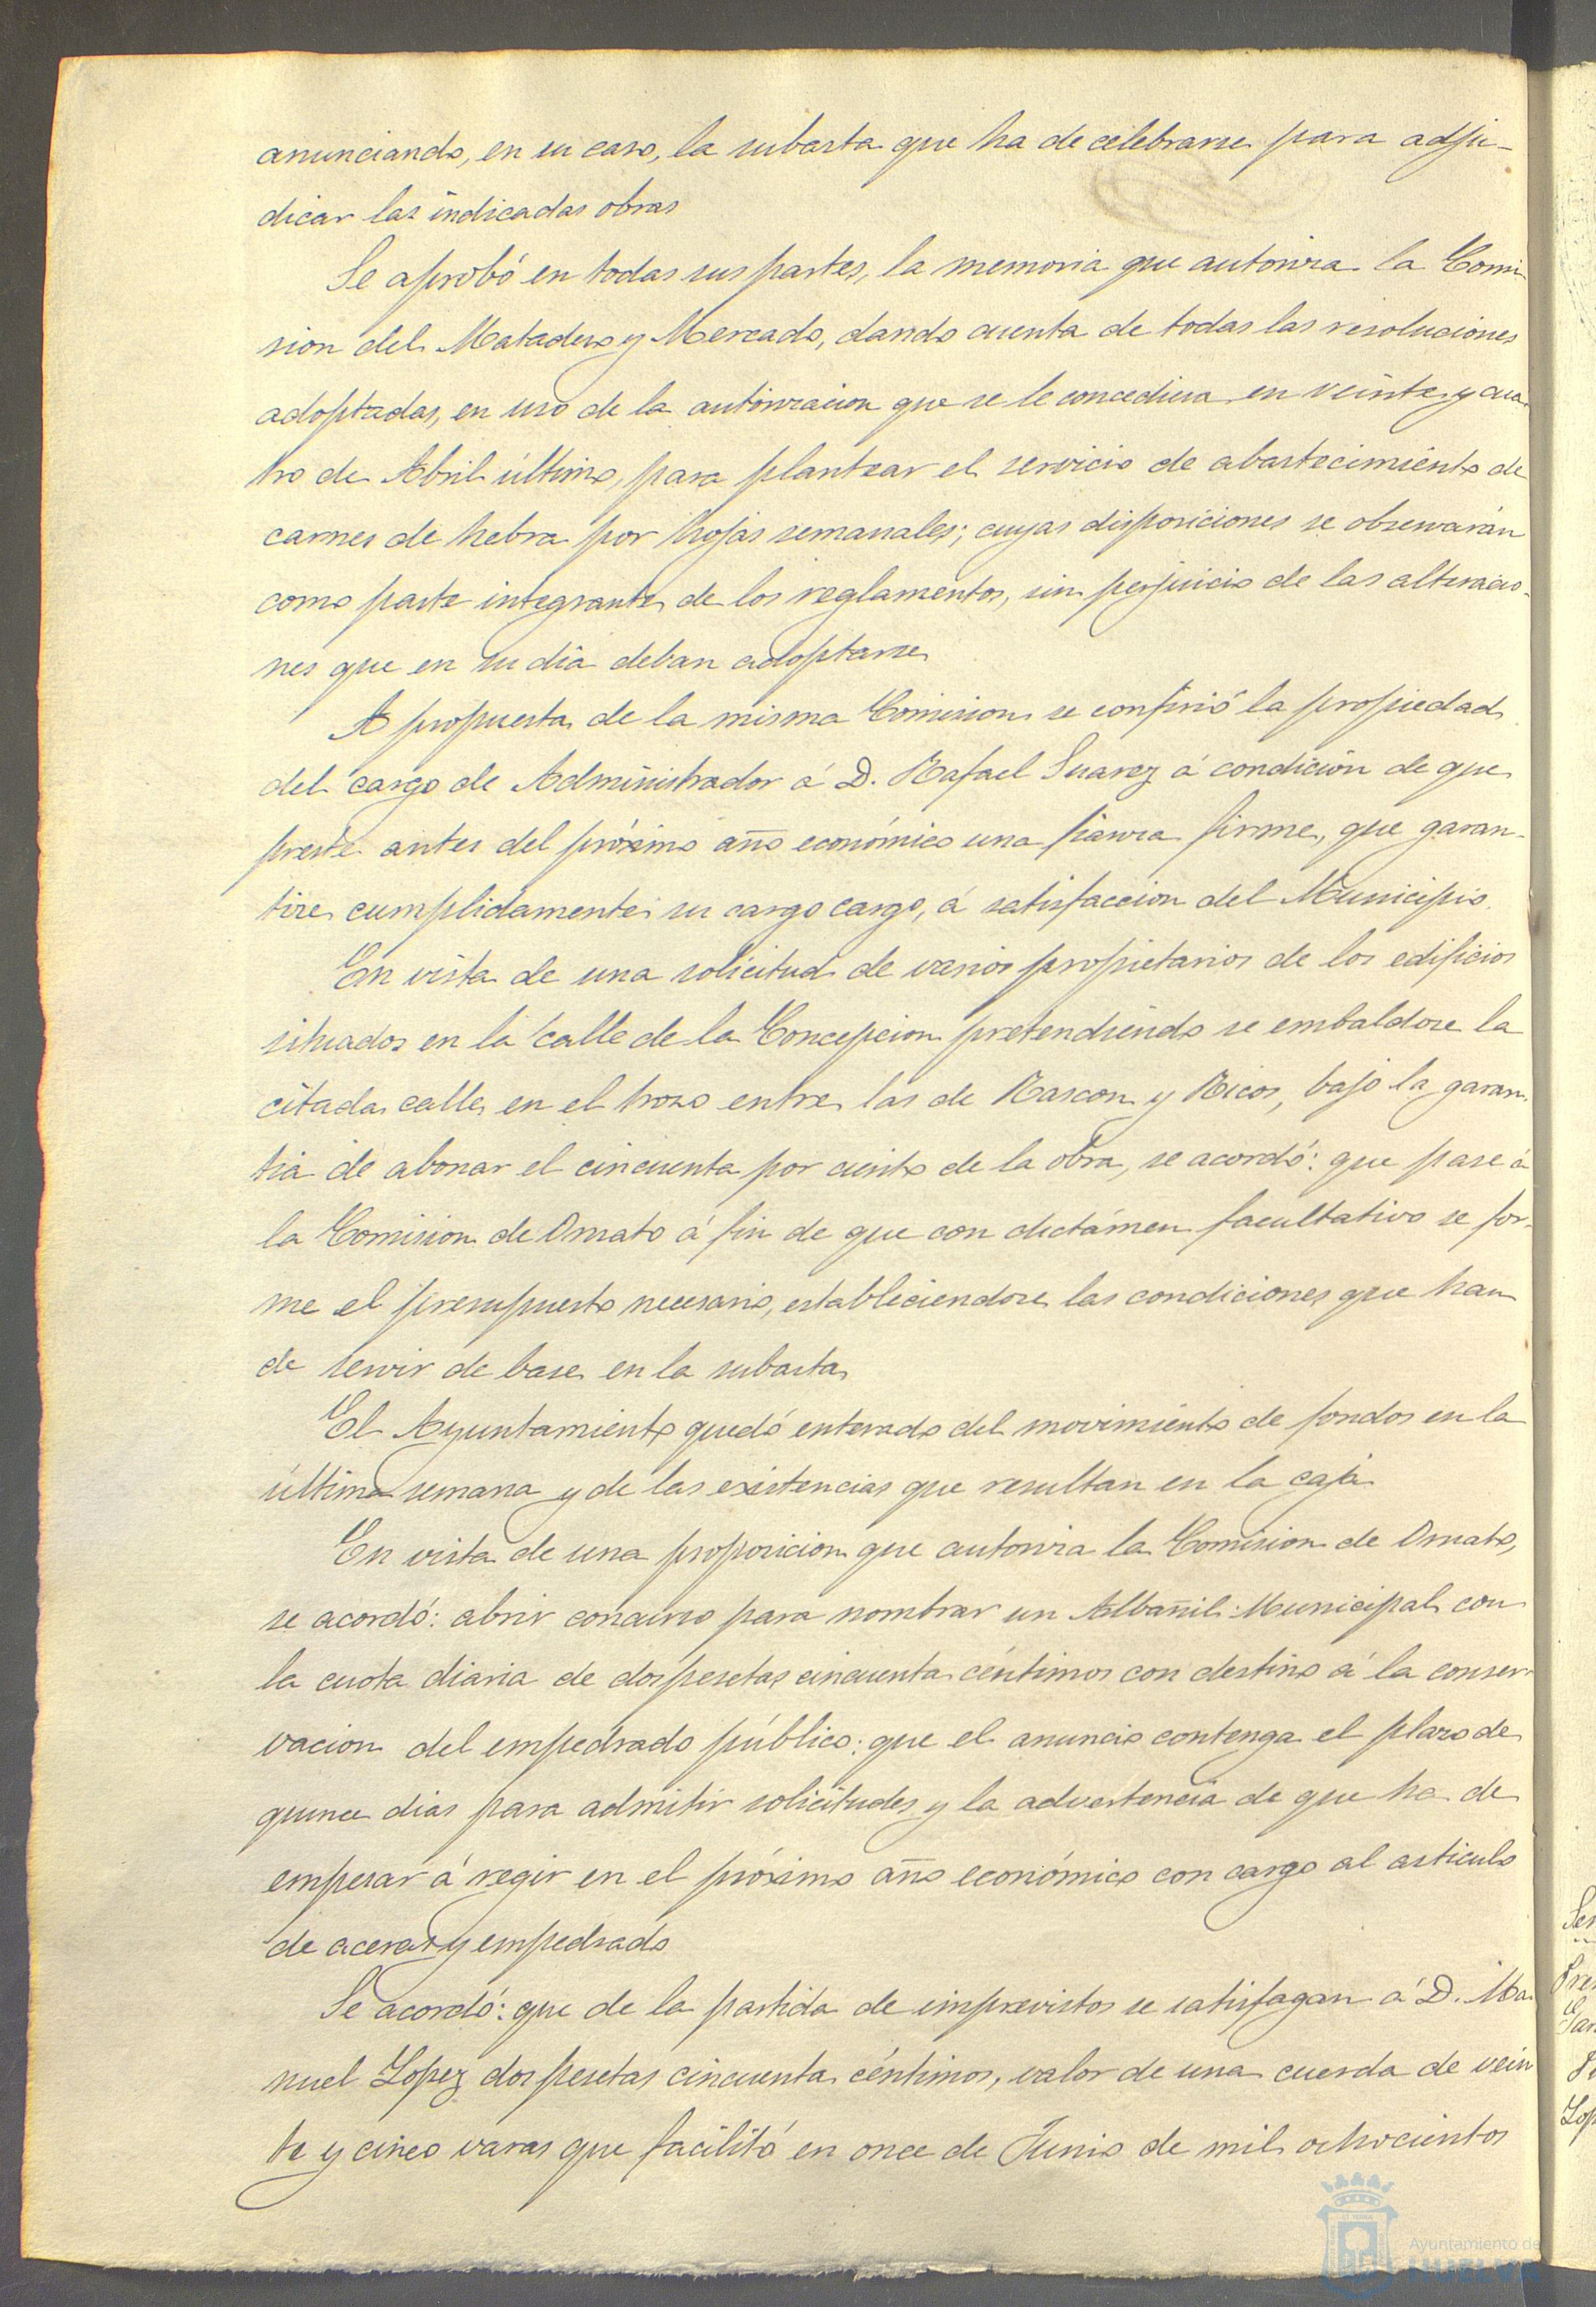 anunciando, en su caso, la subasta que ha de celebrarse para adju-
dicar las indicadas obras
Se aprobó en todas sus partes, la memoria que autoriza la Comi-
sion del Matadero y Mercado, dando cuenta de todas las resoluciones
adoptadas, en uso de la autorizacion que se le concediera en veinte y cua-
tro de Abril último, para plantear el servicio de abastecimiento de
carnes de hebra por hojas semanales; cuyas disposiciones se observarán
como parte integrante de los reglamentos, sin perjuicio de las alteracio-
nes que en su dia deban adoptarse
A propuesta de la misma Comision se confirió la propiedad
del cargo de Administrador á D. Rafael Suarez á condicion de que
preste antes del próximo año económico una fianza firme, que garan-
tize cumplidamente su cargo cargo, á satisfaccion del Municipio.
En vista de una solicitud de varios propietarios de los edificios
situados en la calle de la Concepcion pretendiendo se embaldose la
citada calle en el trozo entre las de Rascon y Ricos, bajo la garan-
tia de abonar el cincuenta por ciento de la obra, se acordó: que pase á
la Comision de Ornato á fin de que con dictámen facultativo se for-
me el presupuesto necesario, estableciendose las condiciones que han
de servir de base en la subasta
El Ayuntamiento quedó enterado del movimiento de fondos en la
última semana y de las existencias que resultan en la caja
En vista de una proposicion que autoriza la Comision de Ornato,
se acordó: abrir concurso para nombrar un Albañil Municipal con
la cuota diaria de dos pesetas cincuenta céntimos con destino á la conser-
vacion del empedrado público: que el anuncio contenga el plazo de
quince dias para admitir solicitudes y la advertencia de que ha de
empezar á regir en el próximo año económico con cargo al articulo
de aceras y empedrado
Se acordó: que de la partida de imprevistos se satisfagan á D. Ma-
nuel Lopez dos pesetas cincuenta céntimos, valor de una cuerda de vein
te y cinco varas que facilitó en once de Junio de mil ochocientos
Ayuntamiento de
HUELVA